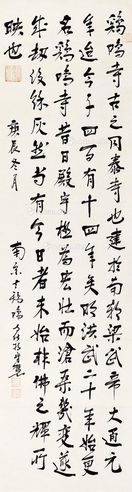 鷄鳴寺古之同泰寺也建於南朝梁武帝大通元
年迄今千四百有十四年矣明洪武二十年始更
名鷄鳴寺昔日殿宇極為宏壯而滄桑幾變遂
成劫後餘灰然有今日者未始非佛之輝所
映也
庚辰冬月
南京古鷄鳴寺